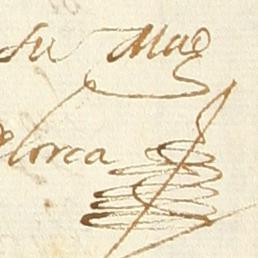 su Mag
lorca